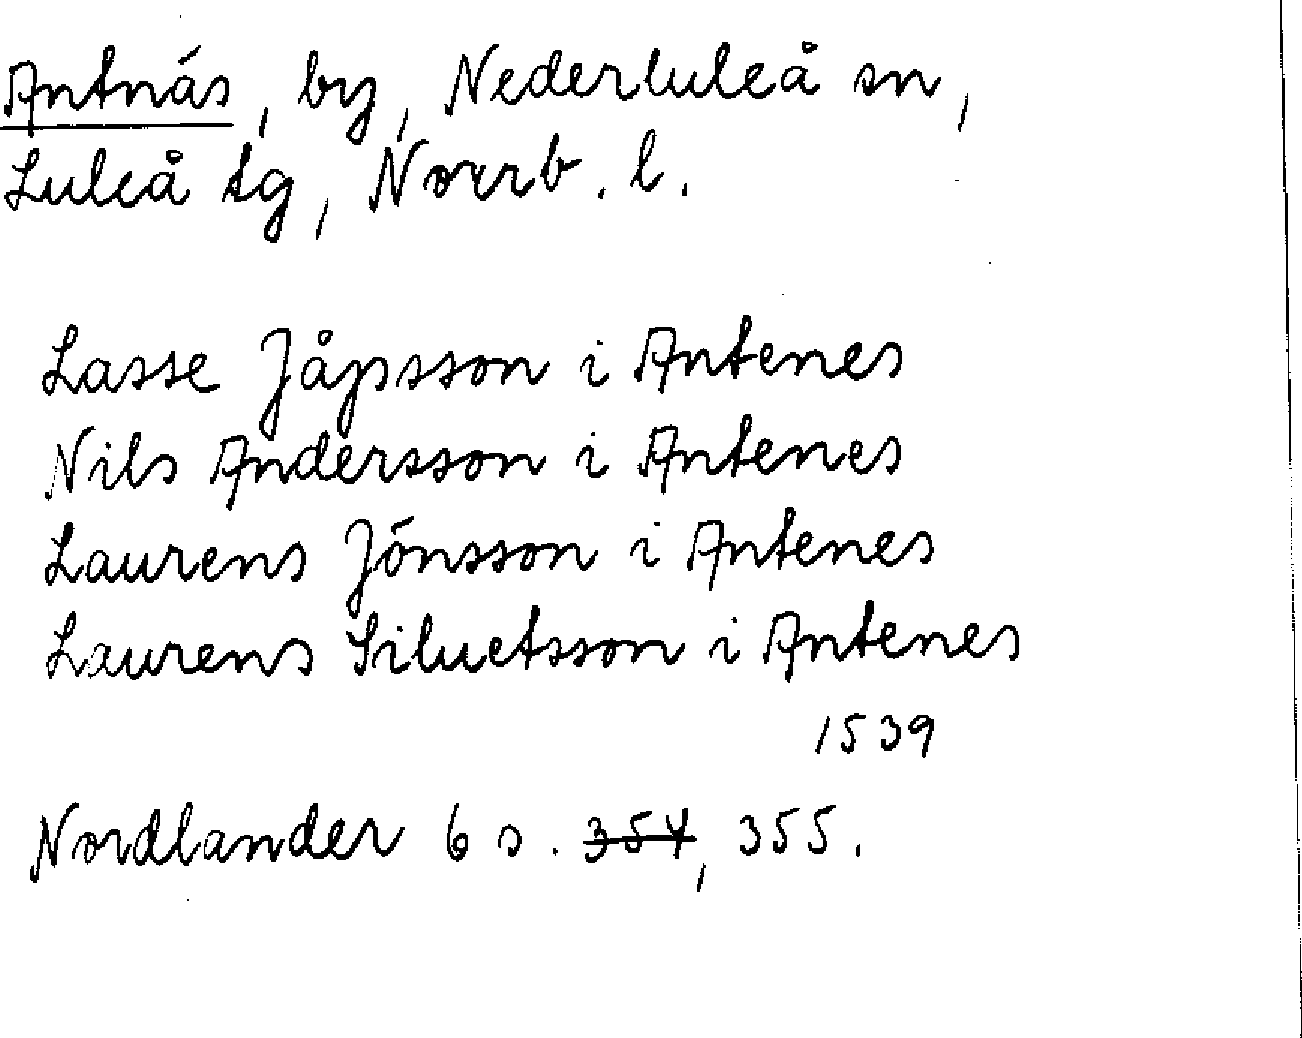 Antnäs, by, Nederluleå sn,
Luleå tg, Norrb. l.
Lasse Jåpsson i Antenes
Nils Andersson i Antenes
Laurens Jönsson i Antenes
Laurens Siluetsson i Antenes
1539
Nordlander 6 s. 354, 355.